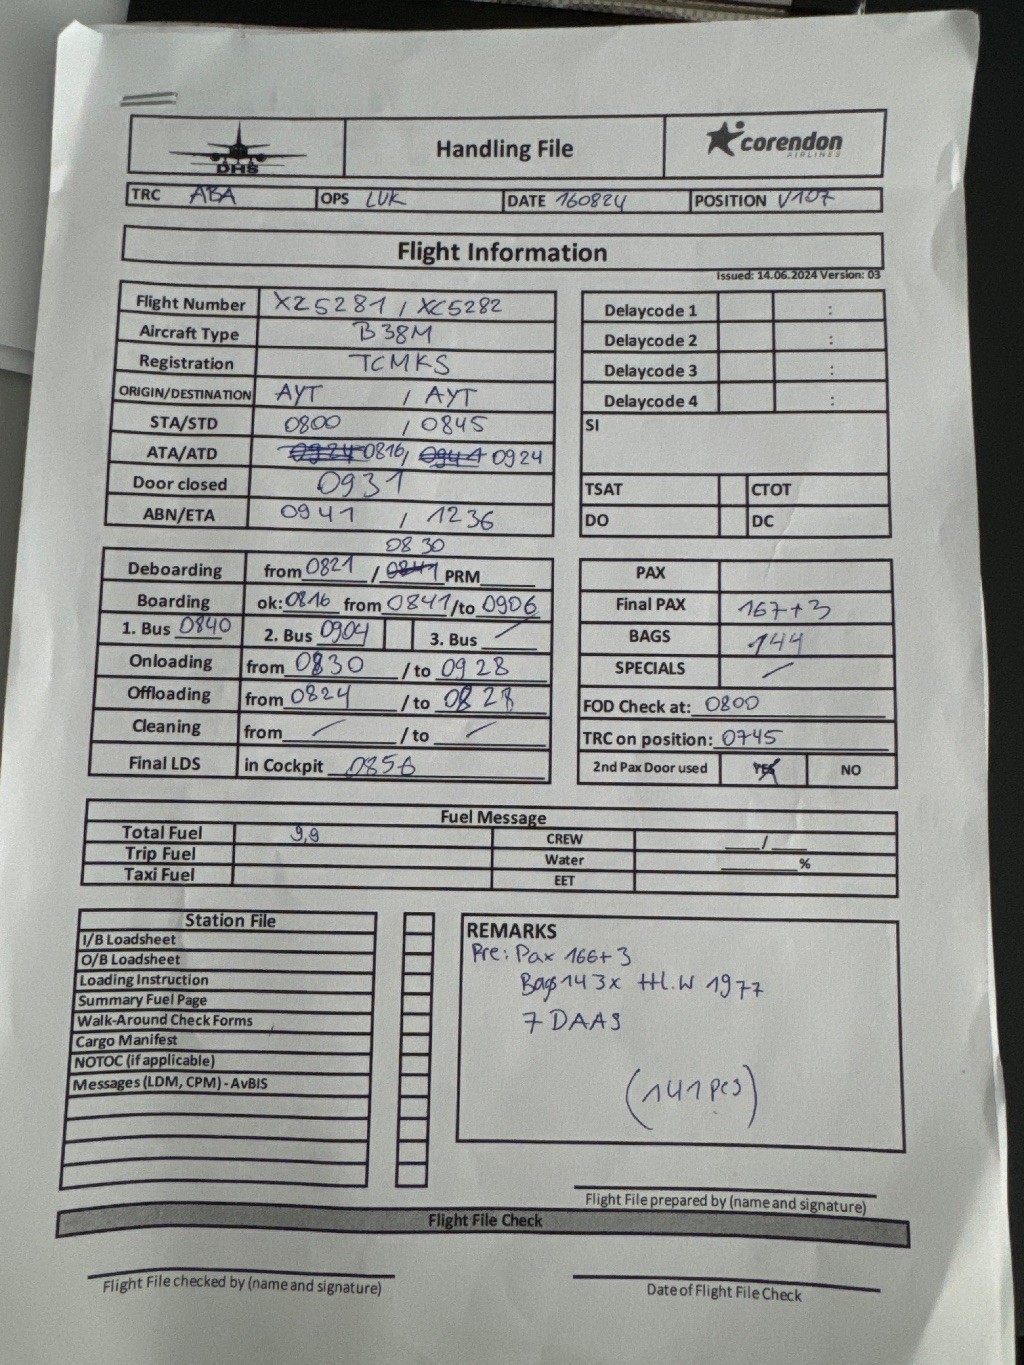 DHS
Handling File
corendon
AIRLINES
TRC ABA OPS LUK DATE 160824 POSITION V107
Flight Information
Issued: 14.06.2024 Version: 03
Flight Number XZ5281 / XC5282
Aircraft Type B38M
Registration TCMKS
ORIGIN/DESTINATION AYT / AYT
STA/STD 0800 / 0845
ATA/ATD 0924 0816 / 0944 0924
Door closed 0931
ABN/ETA 0941 / 1236
Delaycode 1 :
Delaycode 2 :
Delaycode 3 :
Delaycode 4 :
SI
TSAT CTOT
DO DC
0830
Deboarding from 0821 / 0841 PRM
Boarding ok: 0816 from 0841 /to 0906
1. Bus 0840 2. Bus 0904 3. Bus /
Onloading from 0830 / to 0928
Offloading from 0824 / to 0828
Cleaning from / / to /
Final LDS in Cockpit 0856
PAX
Final PAX 167+3
BAGS 144
SPECIALS /
FOD Check at: 0800
TRC on position: 0745
2nd Pax Door used YES NO
Fuel Message
Total Fuel 9,9 CREW /
Trip Fuel Water %
Taxi Fuel EET
Station File
I/B Loadsheet
O/B Loadsheet
Loading Instruction
Summary Fuel Page
Walk-Around Check Forms
Cargo Manifest
NOTOC (if applicable)
Messages (LDM, CPM) - AvBIS
REMARKS
Pre: Pax 166+3
Bags 143x Htl.W 1977
7 DAAS
(141 pcs)
Flight File prepared by (name and signature)
Flight File Check
Flight File checked by (name and signature)
Date of Flight File Check